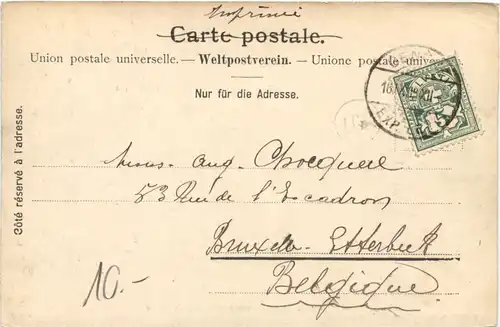 Imprimé
Carte postale.
Union postale universelle. — Weltpostverein. — Unione postale univers
Nur für die Adresse.
Côté réservé à l'adresse.
Mons. Aug. Chocqueel
53 Rue de l'Escadron
Bruxelles-Etterbeek
Belgique
10.-